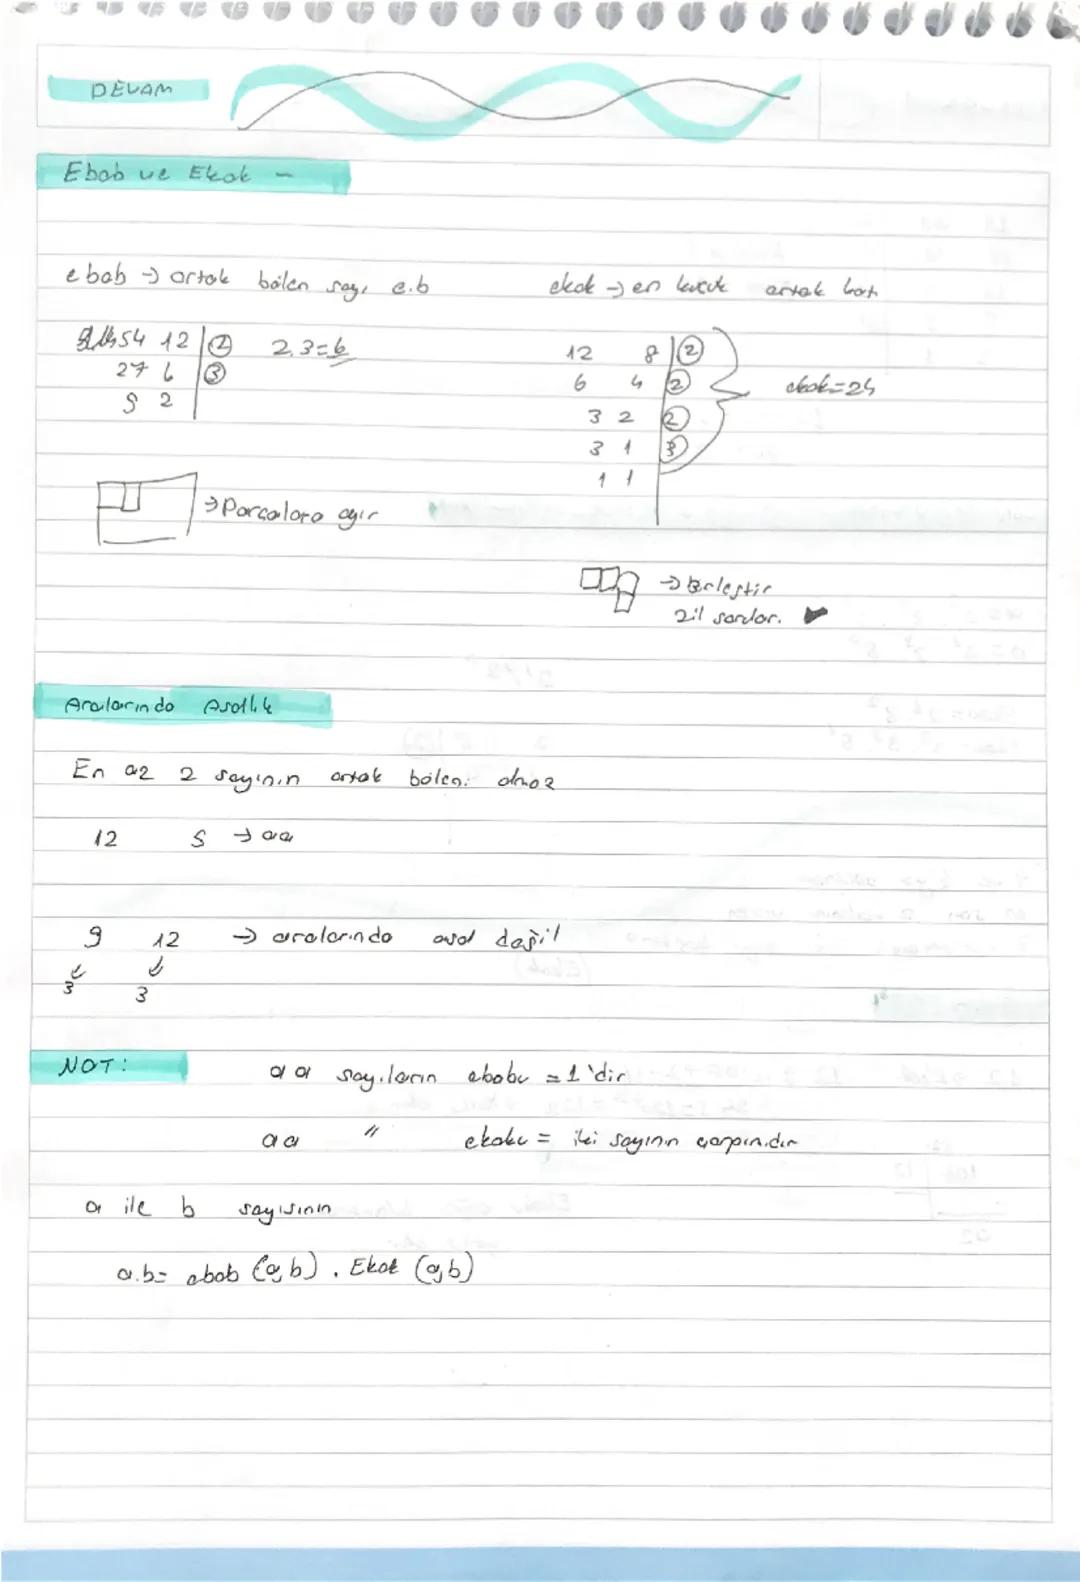 DEVAM
Ebob ve Ekok -
ebob → ortak bölen sayı e.b
54 12 | 2 2.3=6
27 6 | 3
9 2
→ Parçalara ayır
ekok → en küçük ortak kat
12 8 | 2
6 4 | 2 ekok=24
3 2 | 2
3 1 | 3
1 1
→ Birleştir
zil sorular.
Aralarında Asallık
En az 2 sayının ortak böleni olmaz
12 5 → aa
9 12 → aralarında asal değil
3 3
NOT: aa sayıların ebobu = 1'dir
aa " ekoku = iki sayının çarpımıdır
a ile b sayısının
a.b= ebob (a,b) . Ekok (a,b)